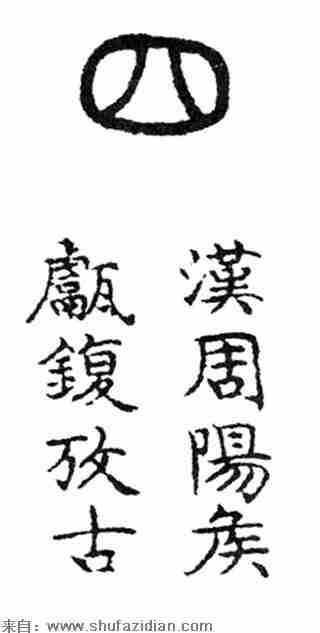 四
漢周陽矦
甗鍑攷古
来自：www.shufazidian.com